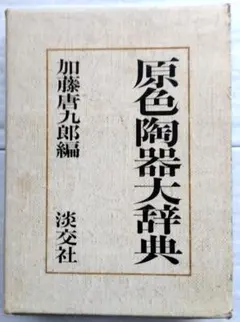 原色陶器大辞典
加藤唐九郎編
淡交社